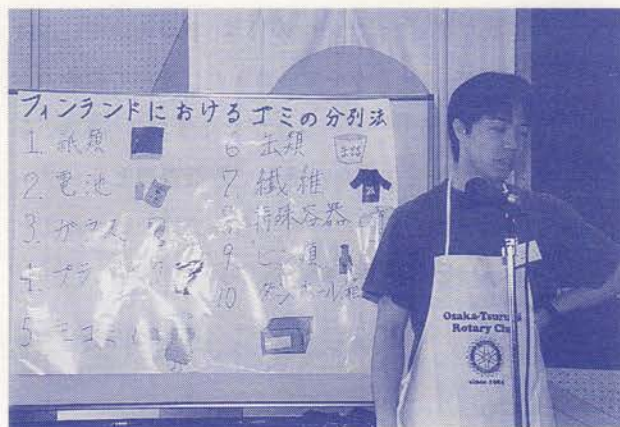 フィンランドにおけるゴミの分別法
1. 紙類
2. 電池
3. ガラス
4. プラ
5. 生ゴミ
6 缶類
7 繊維
8. 特殊容器
9 ビン類
10 ダンボール
Osaka-Tsurumi
Rotary Club
since 1981